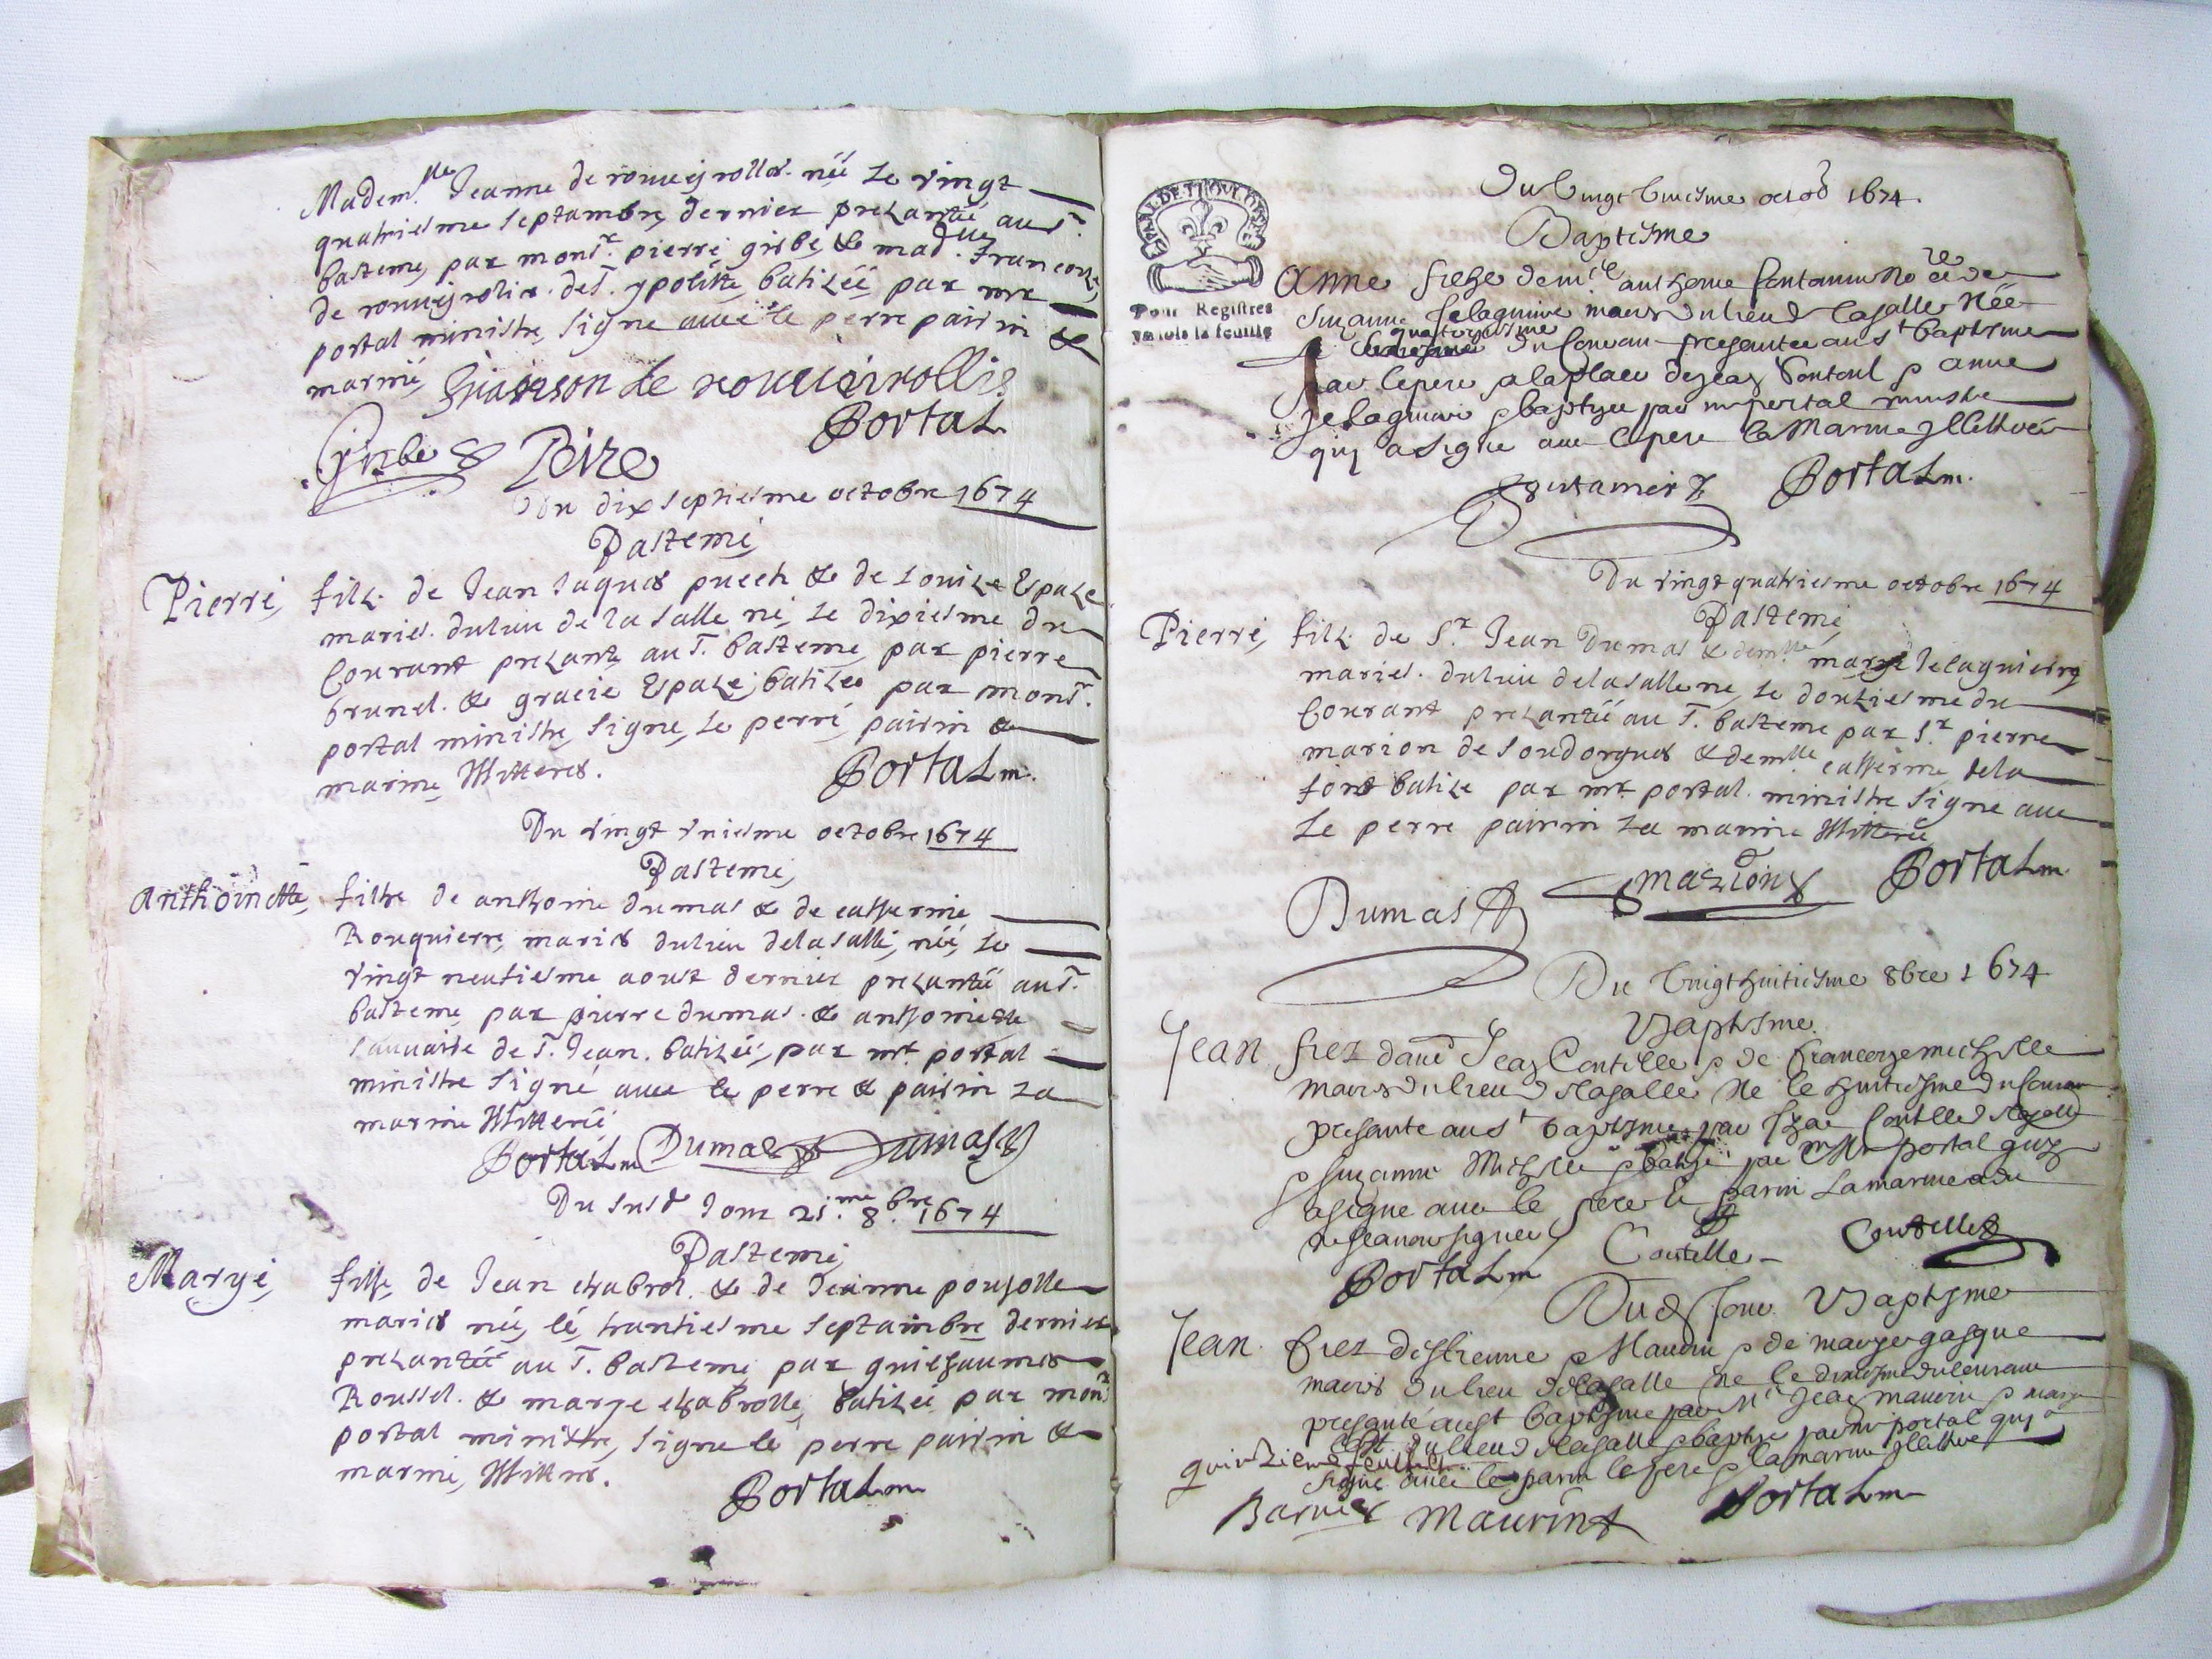 Madem.lle Jeanne de rouveirollis née le vingt
quatriesme septambre dernier prezantée au S.
basteme par monsr. pierre girbe & madlle. francoize
de rouveirolis de S. ypolitte batizée par mr
portal ministre signe avec le perre pairin &
marine
Girbes
Peire
Portal
Du dix septiesme octobre 1674
Basteme
Pierre
fils de Jean Jaques puech & de Louize Espaze
maries du lieu de la salle né le dixiesme du
Courant prezanté au S. basteme par pierre
brunel & gracie Espaze batizee par monsr.
portal ministre signe le perre pairin &
marine Illitteres.
Portal m.
Du vingt uniesme octobre 1674
Basteme
Anthoinette
filhe de anthoine dumas & de catherine
Rouquierre maries du lieu de la salle née le
vingt neufiesme aoust dernier prezantée au S.
basteme par pierre dumas & anthoinette
de S. Jean batizée par mr portal
ministre signé avec le perre & pairin La
marine Illitterée
Portal m
Dumas
Dumas
Du susd Jour 21.me 8.bre 1674
Basteme
Marye
filhe de Jean chabrol & de Jeanne pouzolle
maries née le trantiesme septambre dernier
prezantée au S. basteme par guilhaumes
Roussel & marye chabrolle batizée par monsr
portal ministre signe le perre pairin &
marine Illitteres.
Portal m
GNAL DE THOULOUSE
Pour Registres
la feuille
Du vingt uniesme octob 1674.
Baptisme
Anne filhe de me anthoine fontanieu no re &
Suzanne Jelaguiere maries du lieu de lasalle Née
le quatorziesme du Courant presantee au St baptisme
par le pere a la place de Jean & anne
Jelaguiere & baptizee par mr portal ministre
quy a signé avec le pere la Marine Illitteree
Portal m.
Du vingt quatriesme octobre 1674
Basteme
Pierre
fils de Sr. Jean Dumas & demlle marye Jelaguierre
maries du lieu de la salle né le douziesme du
Courant prezantée au S. basteme par Sr. pierre
marion de soudorgues & demlle catherine dela
font batize par mr. portal ministre signe avec
Le perre pairin La marine Illitterée
Dumas
Marion
Portal m.
Du vingt huitiesme 8bre 1674
Baptisme
Jean
filz dau Jean Coutelle & de francoize michelle
maries du lieu de lasalle Ne le huitiesme du Couran
presante au St baptisme par Coutelle
& Suzanne Michelle & batize par Mr portal quy
a signe avec le pere le parin La marine a dit
ne scavoir signer
Portal m
Coutelle
Coutelle
Dud Jour Baptisme
Jean
filz destienne Maurin & de marye gasque
maries du lieu de lasalle ne le du courant
presanté au St baptisme par Jean maurin & marye
du lieu de lasalle & baptize par mr portal quy a
signe avec le parin le pere & la marine Illitteree
quinzieme feuillet
Barnier
Maurin
Portal m